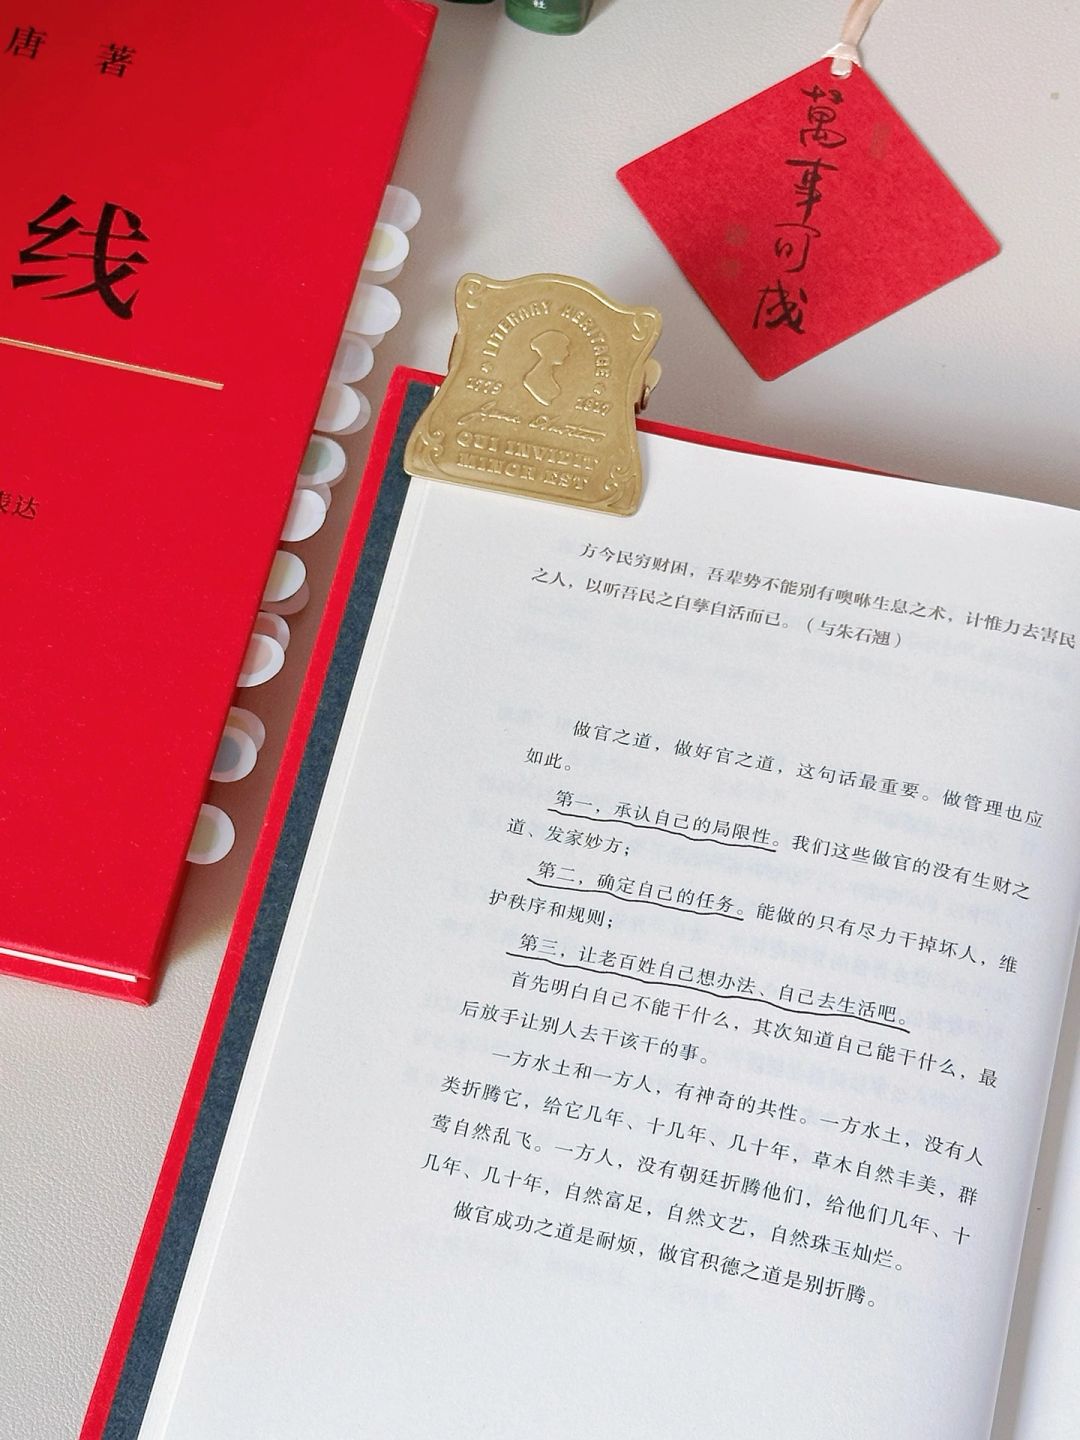 唐 著
线
表达
萬事可成
LITERARY HERITAGE
1775 1817
QUI INVIDIT
MINOR EST
方今民穷财困，吾辈势不能别有噢咻生息之术，计惟力去害民
之人，以听吾民之自孳自活而已。（与朱石翘）
做官之道，做好官之道，这句话最重要。做管理也应
如此。
第一，承认自己的局限性。我们这些做官的没有生财之
道、发家妙方；
第二，确定自己的任务。能做的只有尽力干掉坏人，维
护秩序和规则；
第三，让老百姓自己想办法、自己去生活吧。
首先明白自己不能干什么，其次知道自己能干什么，最
后放手让别人去干该干的事。
一方水土和一方人，有神奇的共性。一方水土，没有人
类折腾它，给它几年、十几年、几十年，草木自然丰美，群
莺自然乱飞。一方人，没有朝廷折腾他们，给他们几年、十
几年、几十年，自然富足，自然文艺，自然珠玉灿烂。
做官成功之道是耐烦，做官积德之道是别折腾。